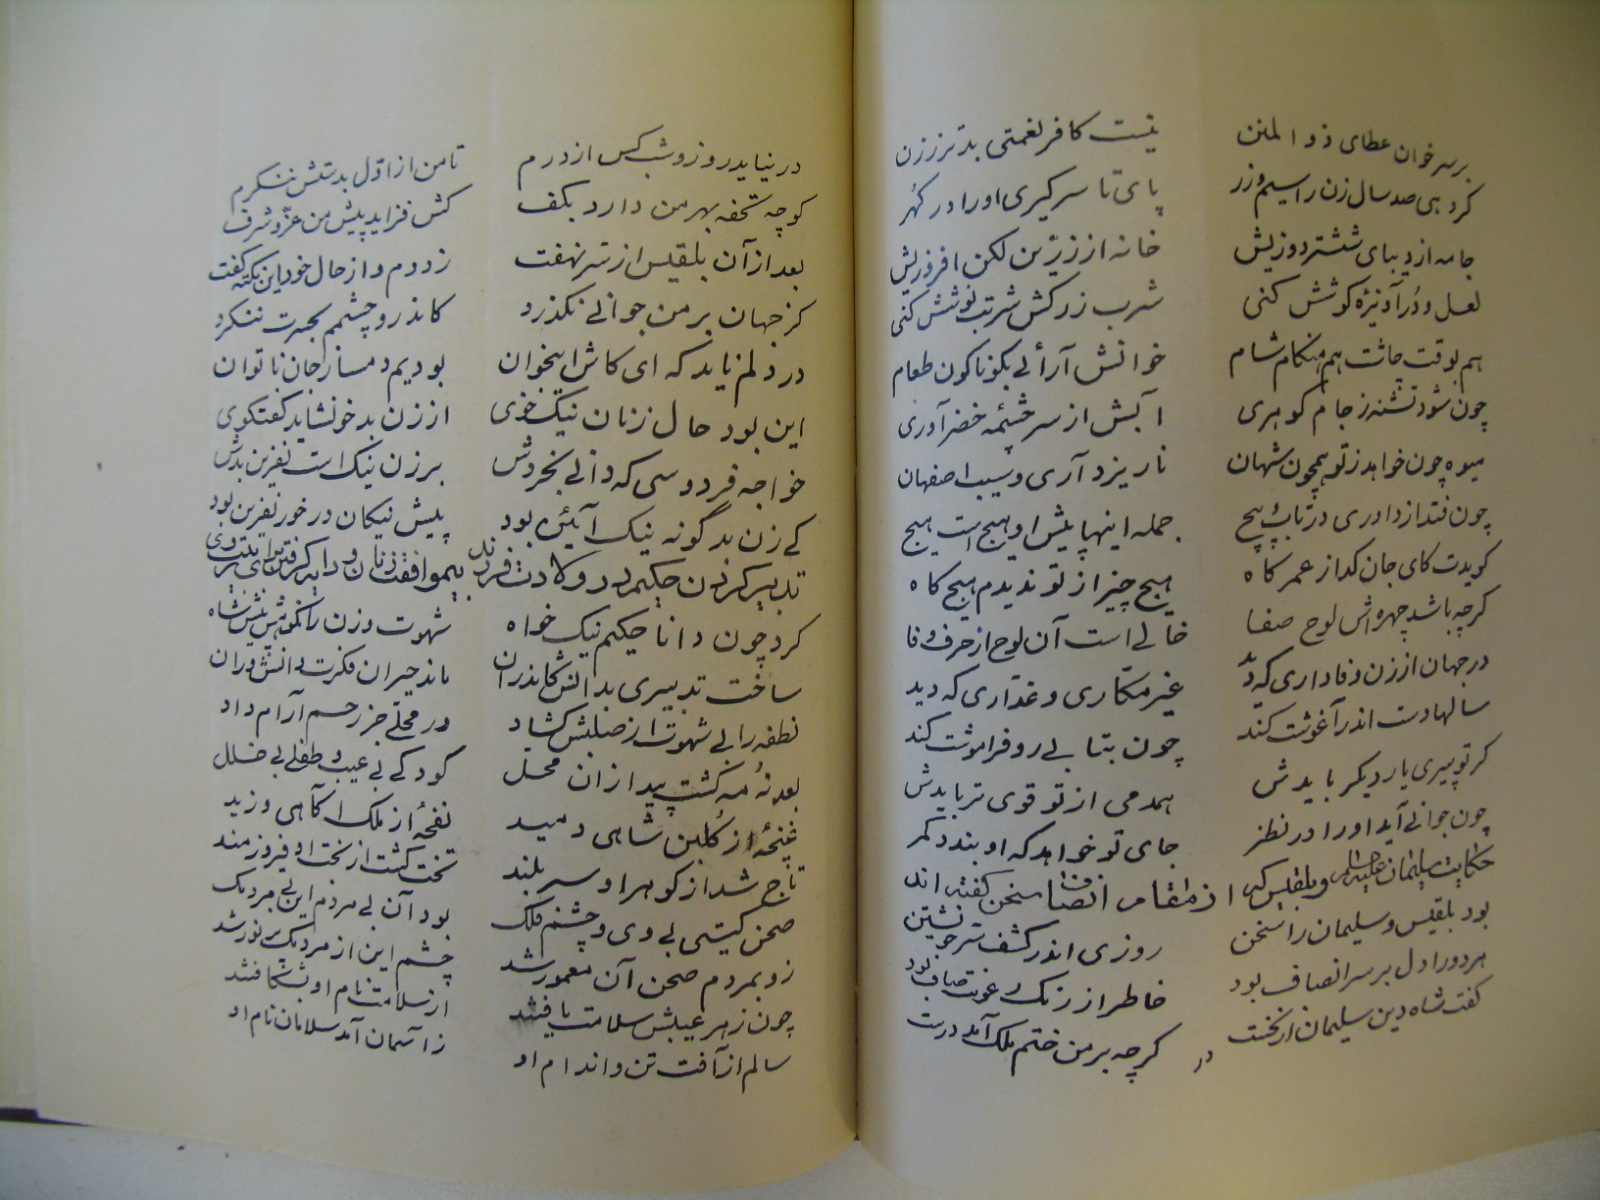 بر سر خوان عطای ذو المنن نیست کافر نعمتی بدتر ززن
کر دهی صد سال زن را سیم و زر پای تا سر کیری اورا در کهر
جامه از دیبای ششتر دوزیش خانه از زرین لکن افروزیش
لعل و در آویزه کوشش کنی شرب زرکش شربت نوشش کنی
هم بوقت چاشت هم هنکام شام خوانش آرائی بکوناکون طعام
چون شود تشنه ز جام کوهری آبش از سر چشمه خضر آوری
میوه چون خواهد ز تو همچون شهان نار یزد آری و سیب اصفهان
چون فتد از داوری در تاب و پیچ جمله اینها پیش او هیچ است هیچ
کویدت کای جان کداز عمر کاه هیچ چیز از تو ندیدم هیچ کاه
کرچه باشد چهره اش لوح صفا خالی است آن لوح از حرف وفا
در جهان از زن وفاداری که دید غیر مکاری و غداری که دید
سالها دست اندر آغوشت کند چون بتابی رو فراموشت کند
کر تو پیری یار دیکر بایدش همدمی از تو قوی تر بایدش
چون جوانی آید اورا در نظر جای تو خواهد که او بندد کمر
حکایت سلیمان علیه السلام و بلقیس که از مقام انصاف سخن کفته اند
بود بلقیس و سلیمان را سخن روزی اندر کشف سر خویشتن
هر دورا دل بر سر انصاف بود خاطر از زنک رعونت صاف بود
کفت شاه دین سلیمان از نخست کرچه بر من ختم ملک آمد درست
در
در نیاید روز و شب کس از درم تا من از اول بدستش ننکرم
کو چه تحفه بهر من دارد بکف کش فزاید پیش من عز و شرف
بعد از آن بلقیس از سر نهفت زد دم و از حال خود این نکته کفت
کز جهان بر من جوانی نکذرد کاندرو چشمم بحسرت ننکرد
در دلم ناید که ای کاش اینجوان بودیم دمساز جان ناتوان
این بود حال زنان نیک خوی از زن بد خو نشاید کفتکوی
خواجه فردوسی که دانی بخردش بر زن نیک است نفرین بدش
کی زن بد کونه نیک آیین بود پیش نیکان در خور نفرین بود
تدبیر کردن حکیم در ولادت فرزند بیموافقت زنان و دایه کرفتن برای پروری
کرد چون دانا حکیم نیک خواه شهوت و زن را نکوهش پیش شاه
ساخت تدبیری بدانش کاندران ماند حیران فکرت دانش وران
نطفه را بی شهوت از صلبش کشاد در محلی جز رحم آرام داد
بعد نه مه کشت پیدا زان محل کودکی بی عیب و طفلی بی خلل
غنچه از کلبن شاهی دمید نفحه از ملک آکاهی وزید
تاج شد از کوهر او سر بلند تخت کشت از بخت او فیروزمند
صحن کیتی بی وی و چشم فلک بود آن بی مردم این بی مردمک
زو بمردم صحن آن معمور شد چشم این از مردمک پر نور شد
چون ز هر عیبش سلامت یافتند از سلامت نام او بشکافتند
سالم از آفت تن و اندام او ز آسمان آمد سلامان نام او